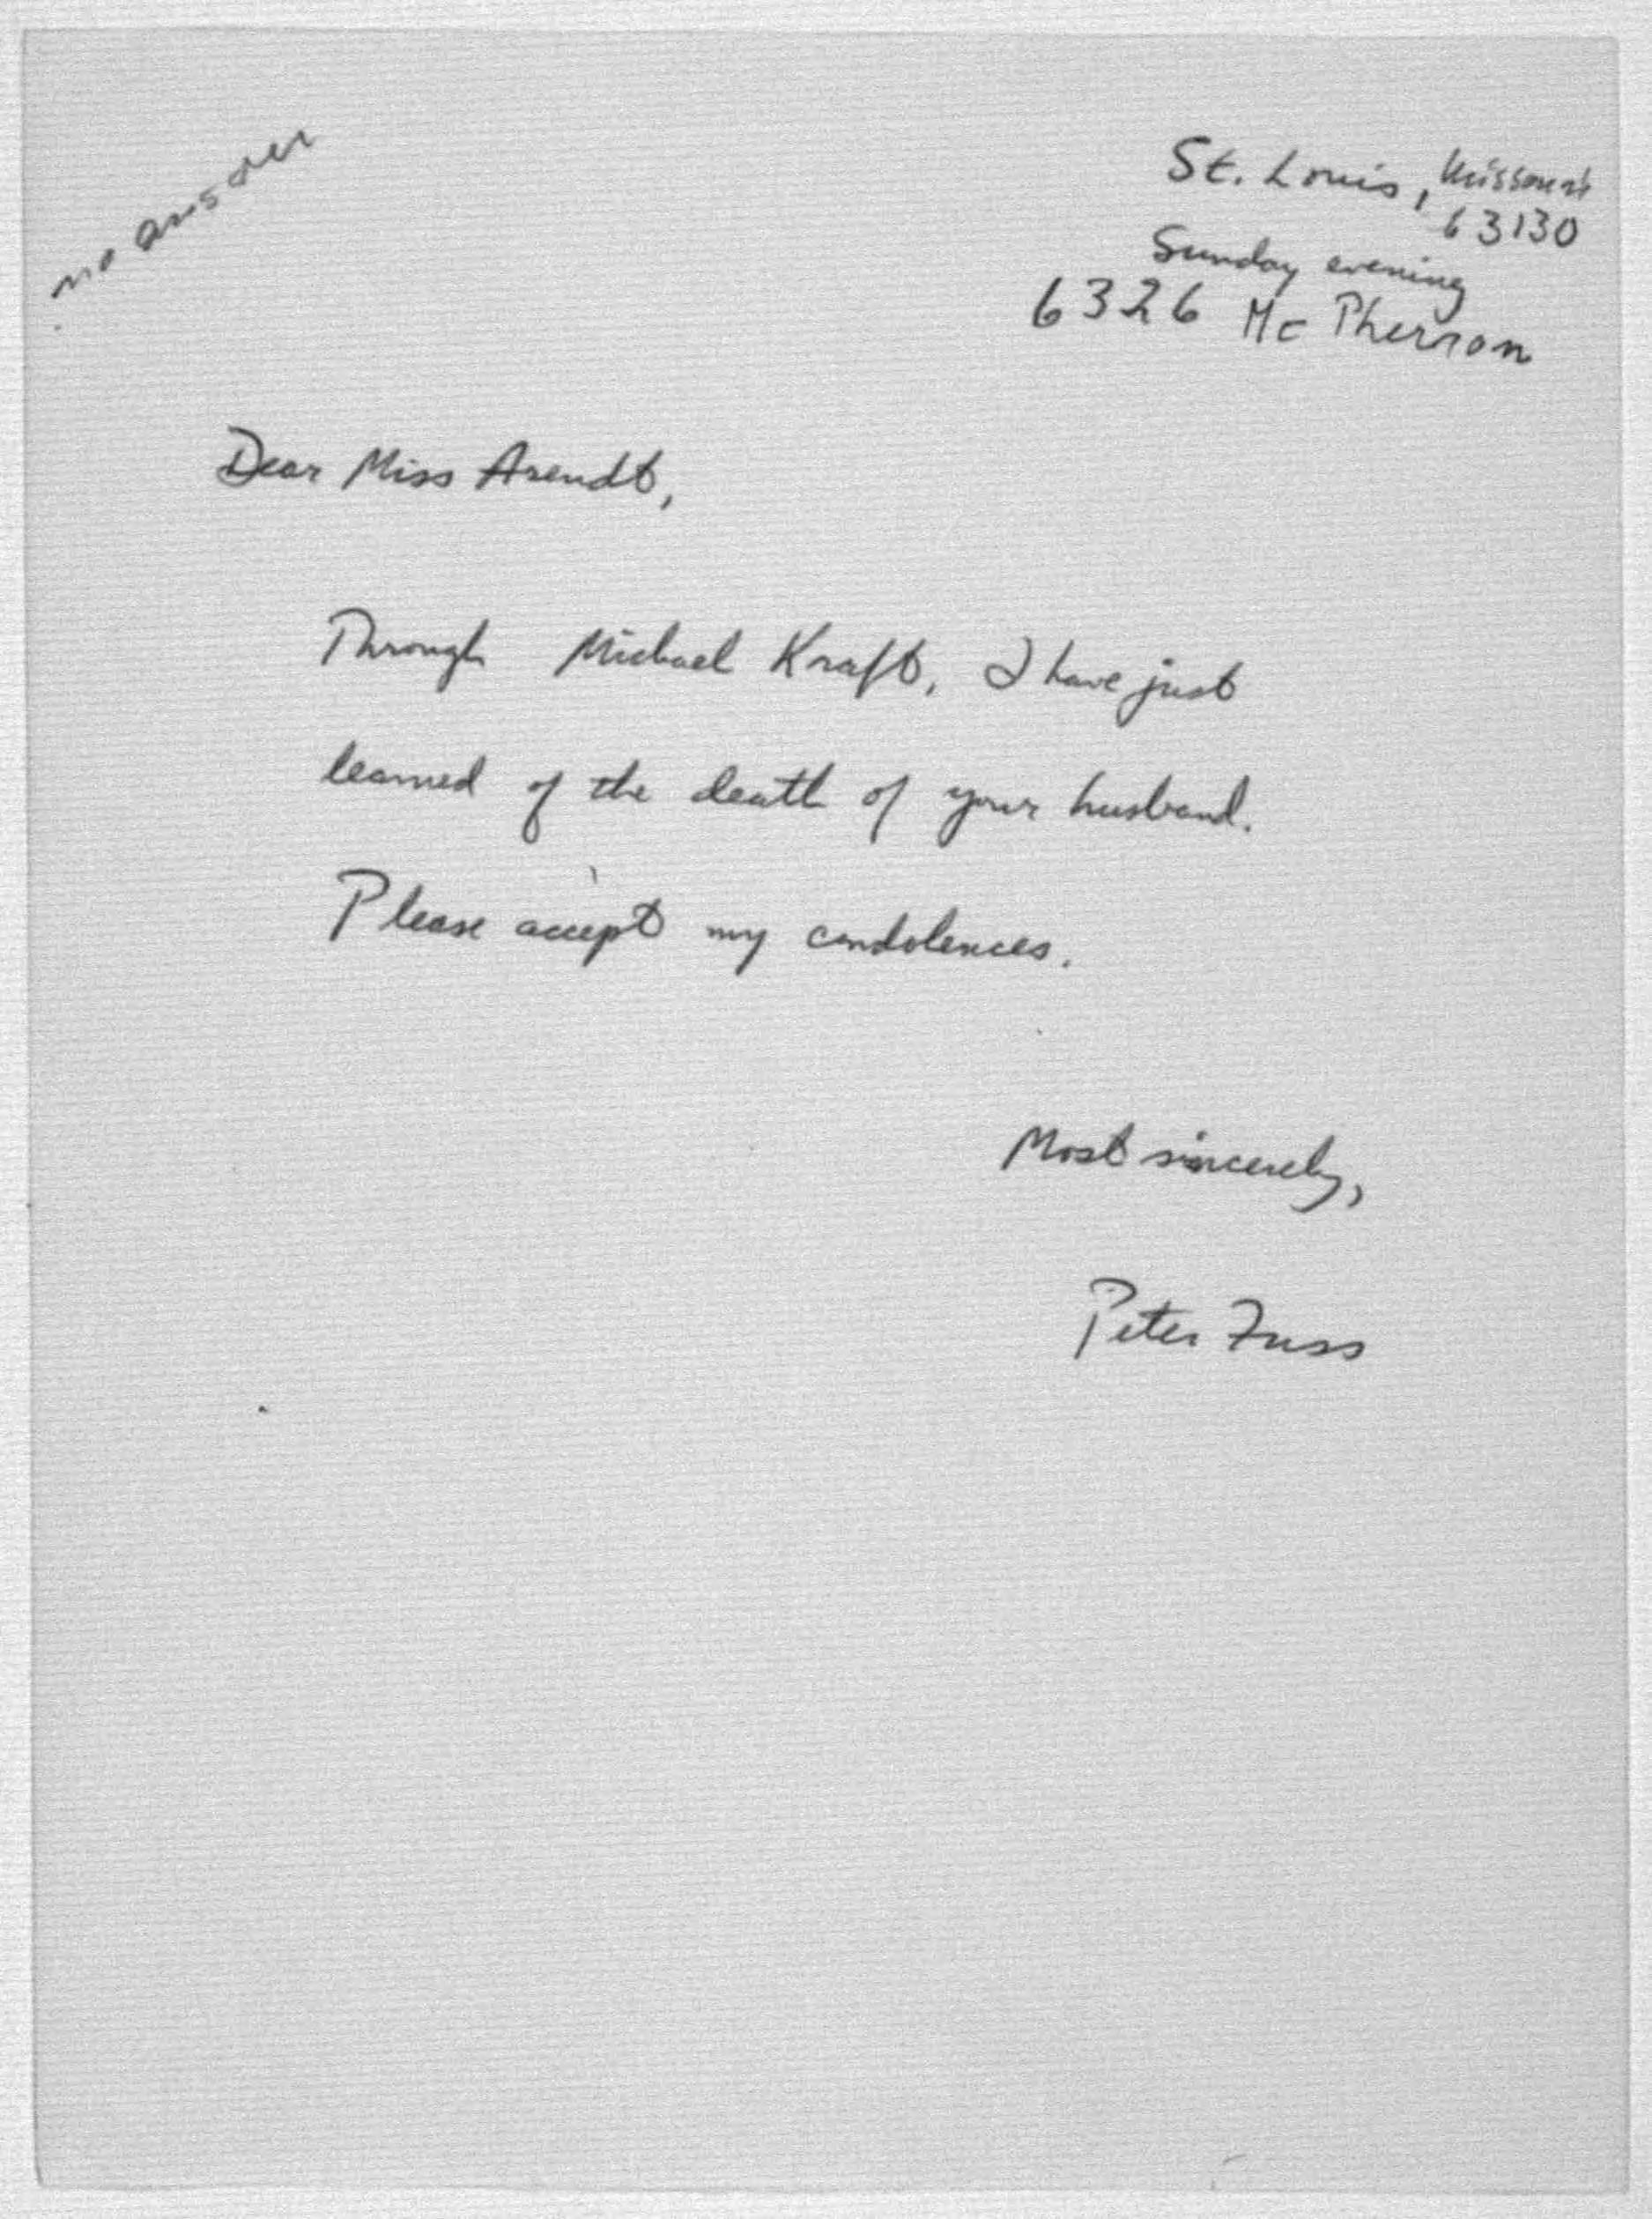 no answer
St. Louis, Missouri
63130
Sunday evening
6326 McPherson
Dear Miss Arendt,
Through Michael Kraft, I have just
learned of the death of your husband.
Please accept my condolences.
Most sincerely,
Peter Fuss